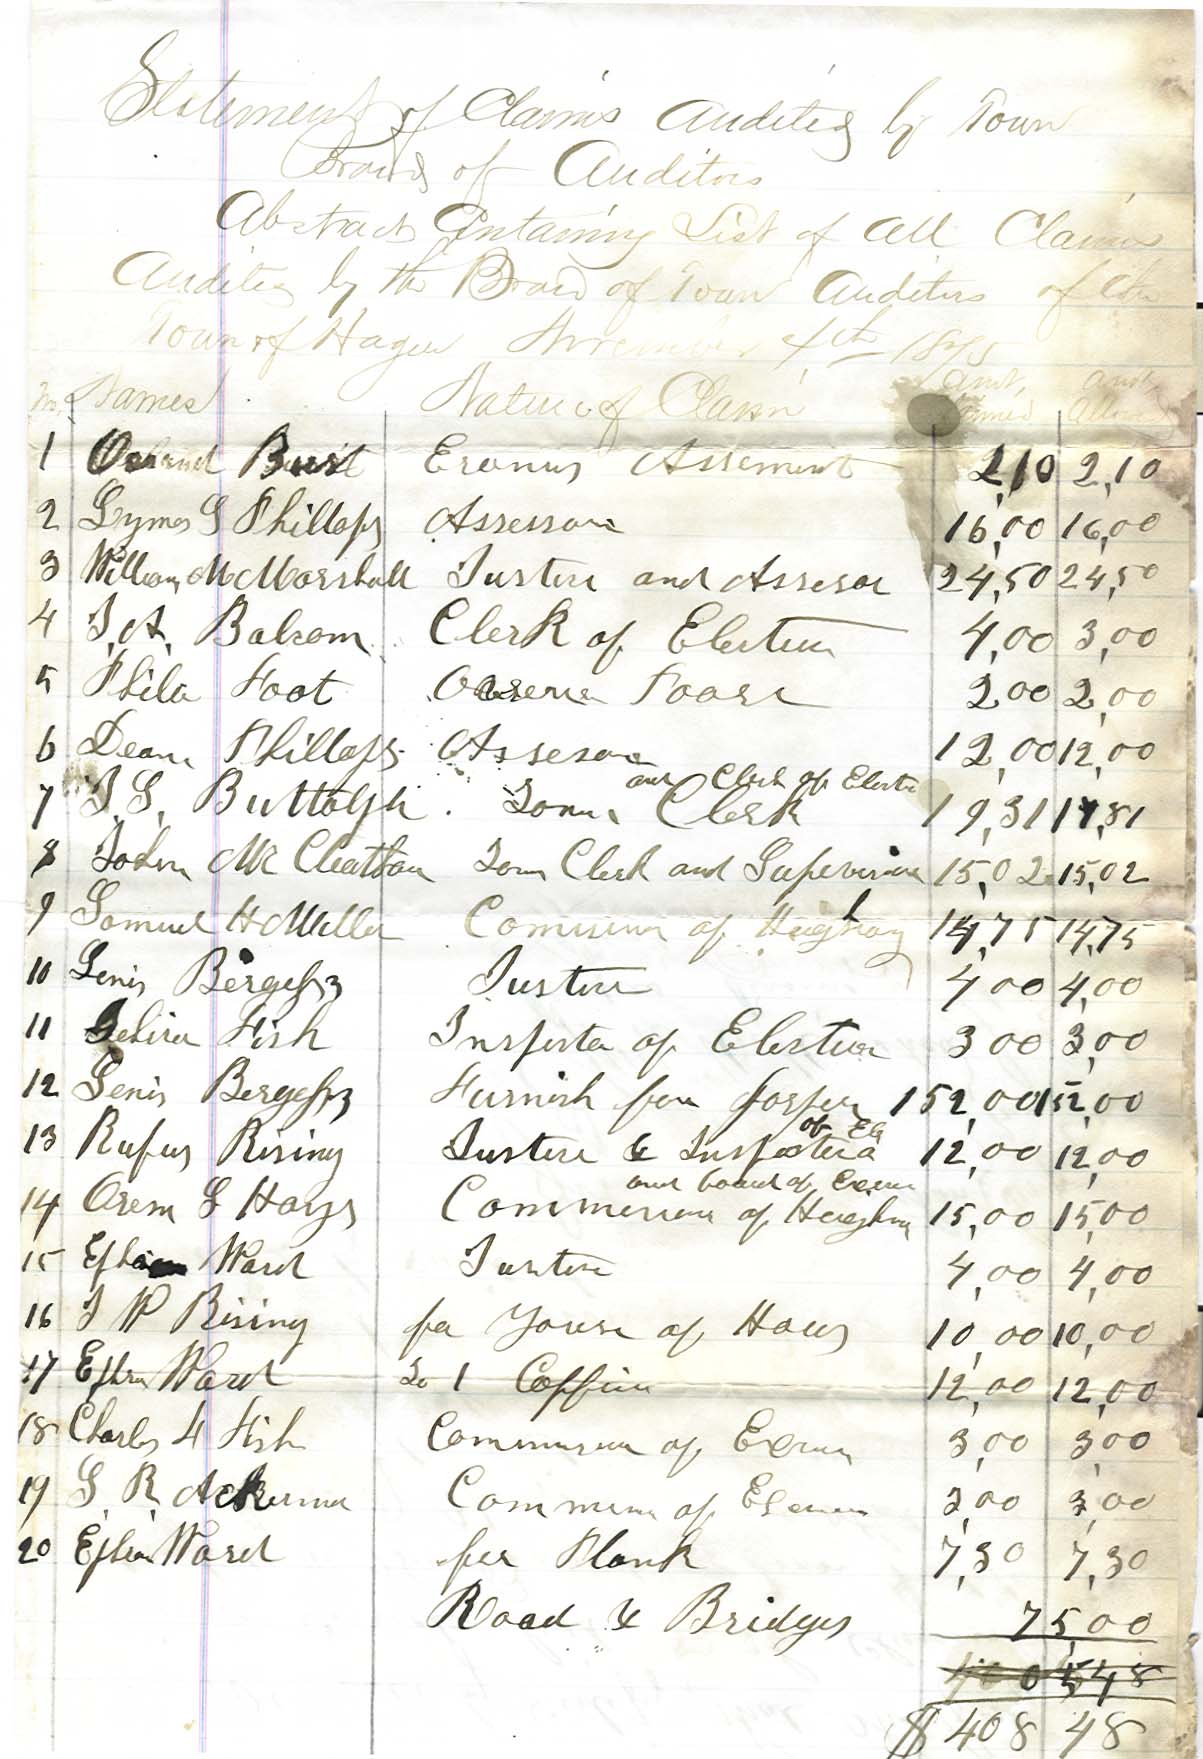 Statement of Claims Audited by Town
Board of Auditors
Abstract Containing List of All Claims
Audited by the Board of Town Auditors of the
Town of Hague November 4th 1875
No. Names Nature of Claim Amt. Claimed Amt. Allowed
1 Burt Eronus Assement 2,10 2,10
2 Lyman G Phillops Assessor 16,00 16,00
3 William McMarshall Justice and Assesor 24,50 24,50
4 J. A. Balcom Clerk of Election 4,00 3,00
5 Phila Foot Poore 2,00 2,00
6 Dean Phillops Assesor 12,00 12,00
7 J. G. Buttolph Town Clerk and Clerk of Electi 19,31 17,81
8 John Mc Clathan Town Clerk and Supervisor 15,02 15,02
9 Samuel H Miller Comisioner of Heighway 14,75 14,75
10 Levis Bergess Justice 4,00 4,00
11 Fish Inspector of Election 3 00 3,00
12 Levis Bergess Furnish for 152,00 152,00
13 Rufus Rising Justice & Inspector of El 12,00 12,00
14 Orem G Hays Commisioner of Heighway and board of Excise 15,00 15,00
15 Ward Justice 4,00 4,00
16 J W Rising for House of 10,00 10,00
17 Ephra Ward To 1 Coffin 12,00 12,00
18 Charles H Fish Commisioner of Excise 3,00 3,00
19 G. R. Ackerman Commisioner of Excise 3,00 3,00
20 Ephra Ward for Plank 7,30 7,30
Road & Bridges 75,00
400 548
$ 408 48